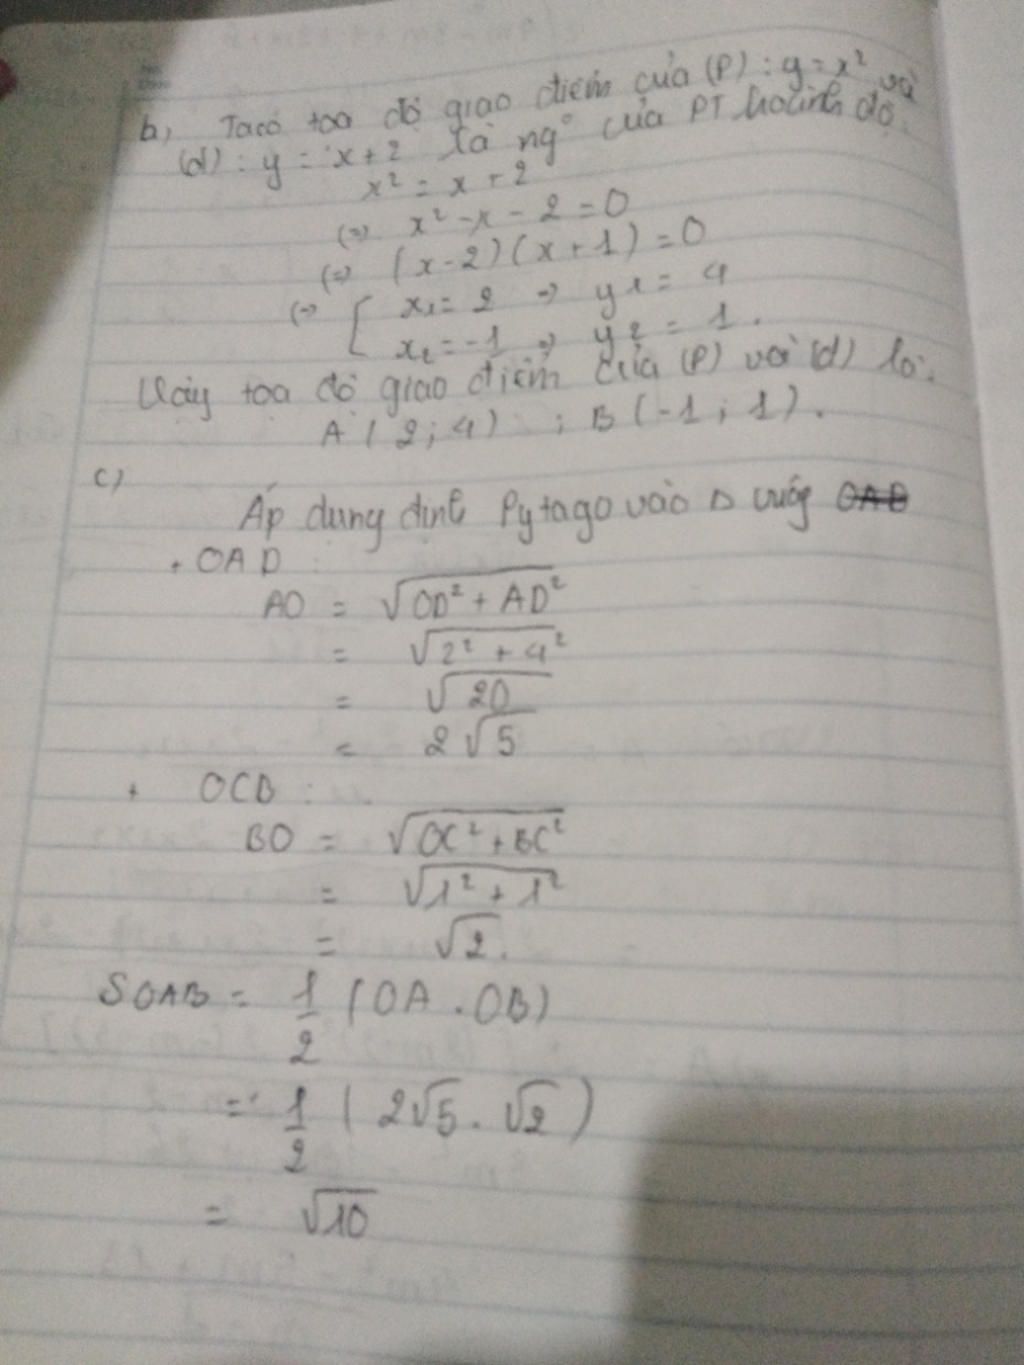 b) Ta có toạ độ giao điểm của (P) : y = x² và
(d) : y = x + 2 là ng° của PT hoành độ.
x² = x + 2
(=) x² - x - 2 = 0
(=) (x - 2)(x + 1) = 0
(=) [ x₁ = 2 => y₁ = 4
x₂ = -1 => y₂ = 1.
Vậy toạ độ giao điểm của (P) và (d) là:
A (2; 4) ; B (-1; 1).
c)
Áp dụng định Pytago vào Δ vuông OAB
+ OAD :
AO = √OD² + AD²
= √2² + 4²
= √20
= 2√5
+ OCB :
BO = √OC² + BC²
= √1² + 1²
= √2.
SOAB = 1/2 (OA . OB)
= 1/2 (2√5 . √2)
= √10